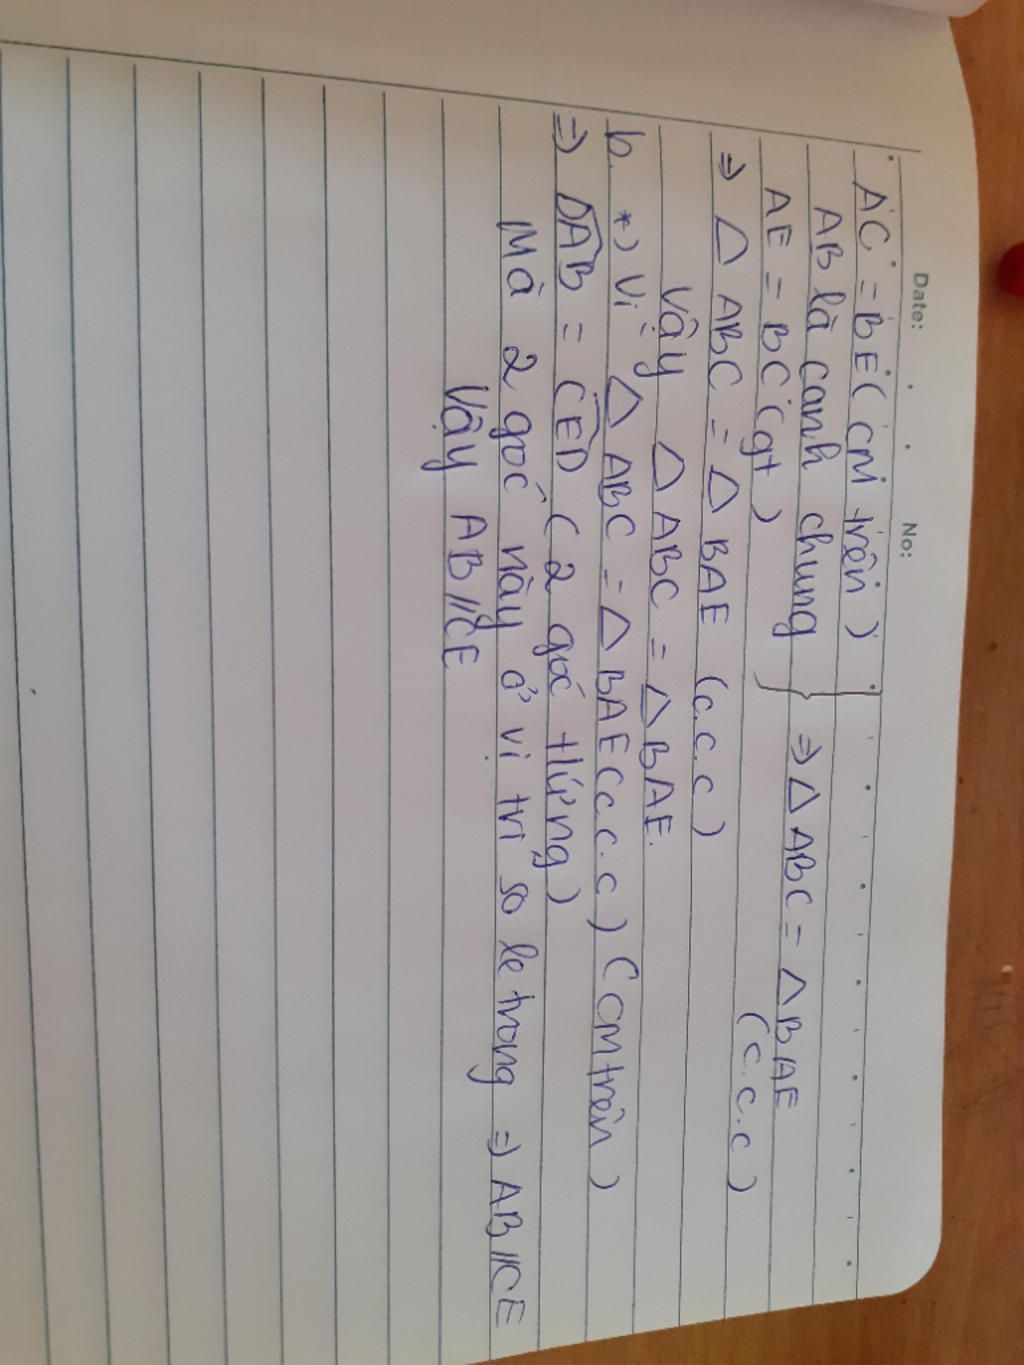 Date: No:
AC = BE (cm trên)
AB là canh chung } => △ ABC = △ BAE
AE = BC (gt) (c.c.c)
=> △ ABC = △ BAE (c.c.c)
Vậy △ ABC = △ BAE.
b. *) Vì: △ ABC = △ BAE (c.c.c) (cm trên)
=> DAB = CED (2 góc tứng)
Mà 2 góc này ở vị trí so le trong => AB // CE
Vậy AB // CE